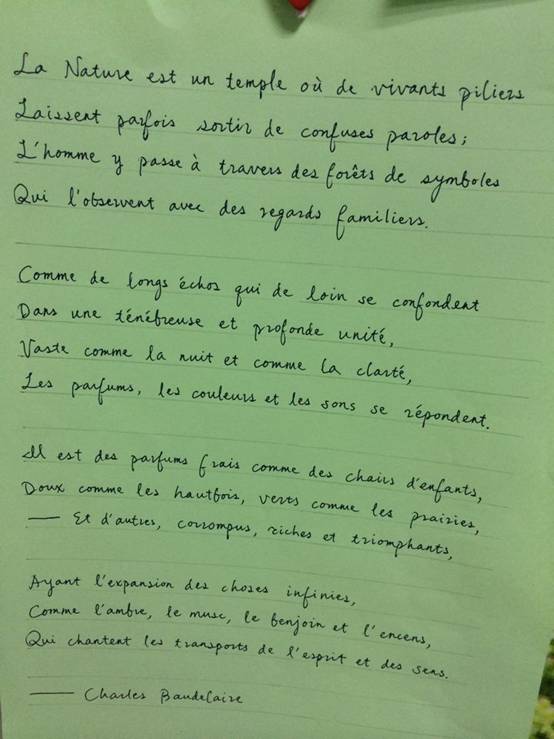 La Nature est un temple où de vivants piliers
Laissent parfois sortir de confuses paroles;
L'homme y passe à travers des forêts de symboles
Qui l'observent avec des regards familiers.
Comme de longs échos qui de loin se confondent
Dans une ténébreuse et profonde unité,
Vaste comme la nuit et comme la clarté,
Les parfums, les couleurs et les sons se répondent.
Il est des parfums frais comme des chairs d'enfants,
Doux comme les hautbois, verts comme les prairies,
— Et d'autres, corrompus, riches et triomphants,
Ayant l'expansion des choses infinies,
Comme l'ambre, le musc, le benjoin et l'encens,
Qui chantent les transports de l'esprit et des sens.
— Charles Baudelaire